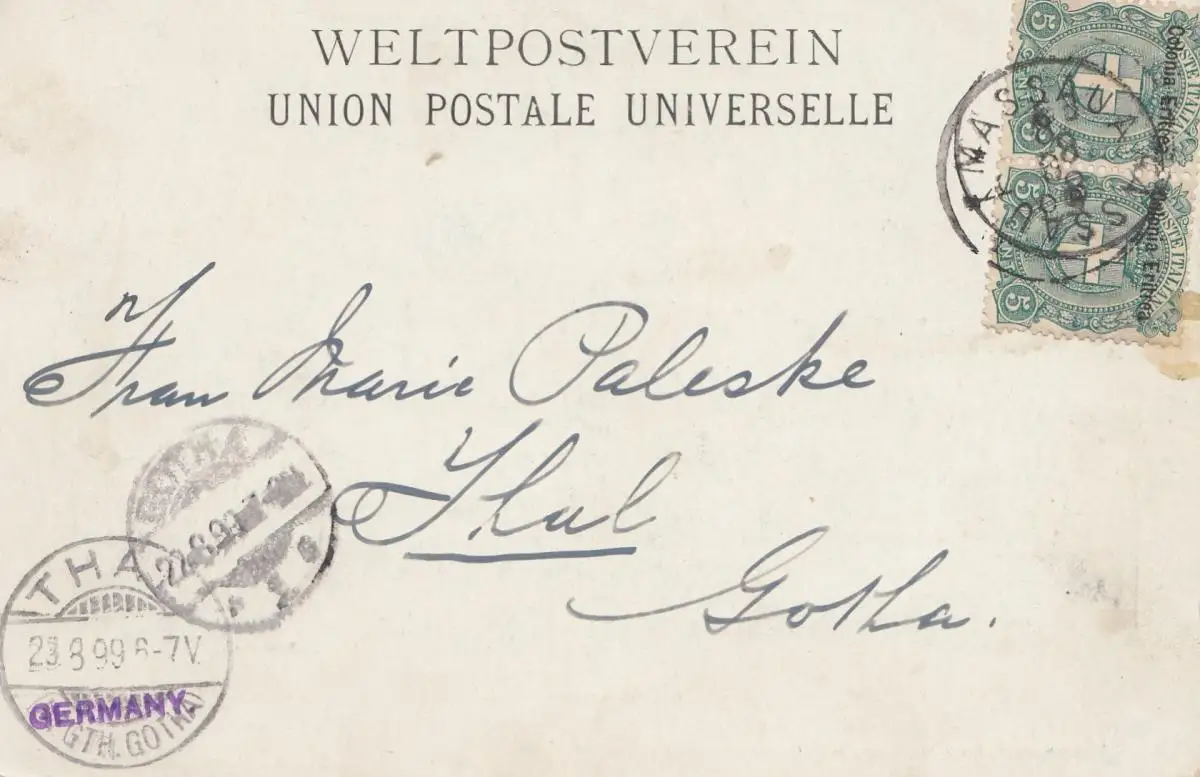 WELTPOSTVEREIN
UNION POSTALE UNIVERSELLE
5
Colonia Eritrea
MASSAUA
5
POSTE ITALIANE
Colonia Eritrea
5
Frau Marie Paleske
Thal
Gotha.
GOTHA
22.8.99
THAL
23.8.99 6-7V.
GERMANY.
GTH. GOTHA